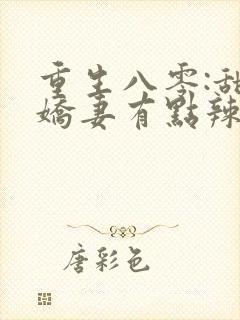 重生八零:甜
嬌妻有點辣
唐彩色